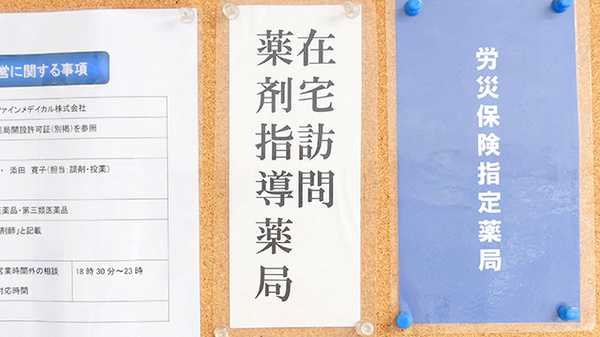 営に関する事項
ァインメディカル株式会社
局開設許可証(別掲)を参照
・ 添田 寛子(担当:調剤・投薬)
医薬品・第三類医薬品
剤師」と記載
営業時間外の相談
対応時間
18時30分〜23時
在宅訪問
薬剤指導薬局
労災保険指定薬局